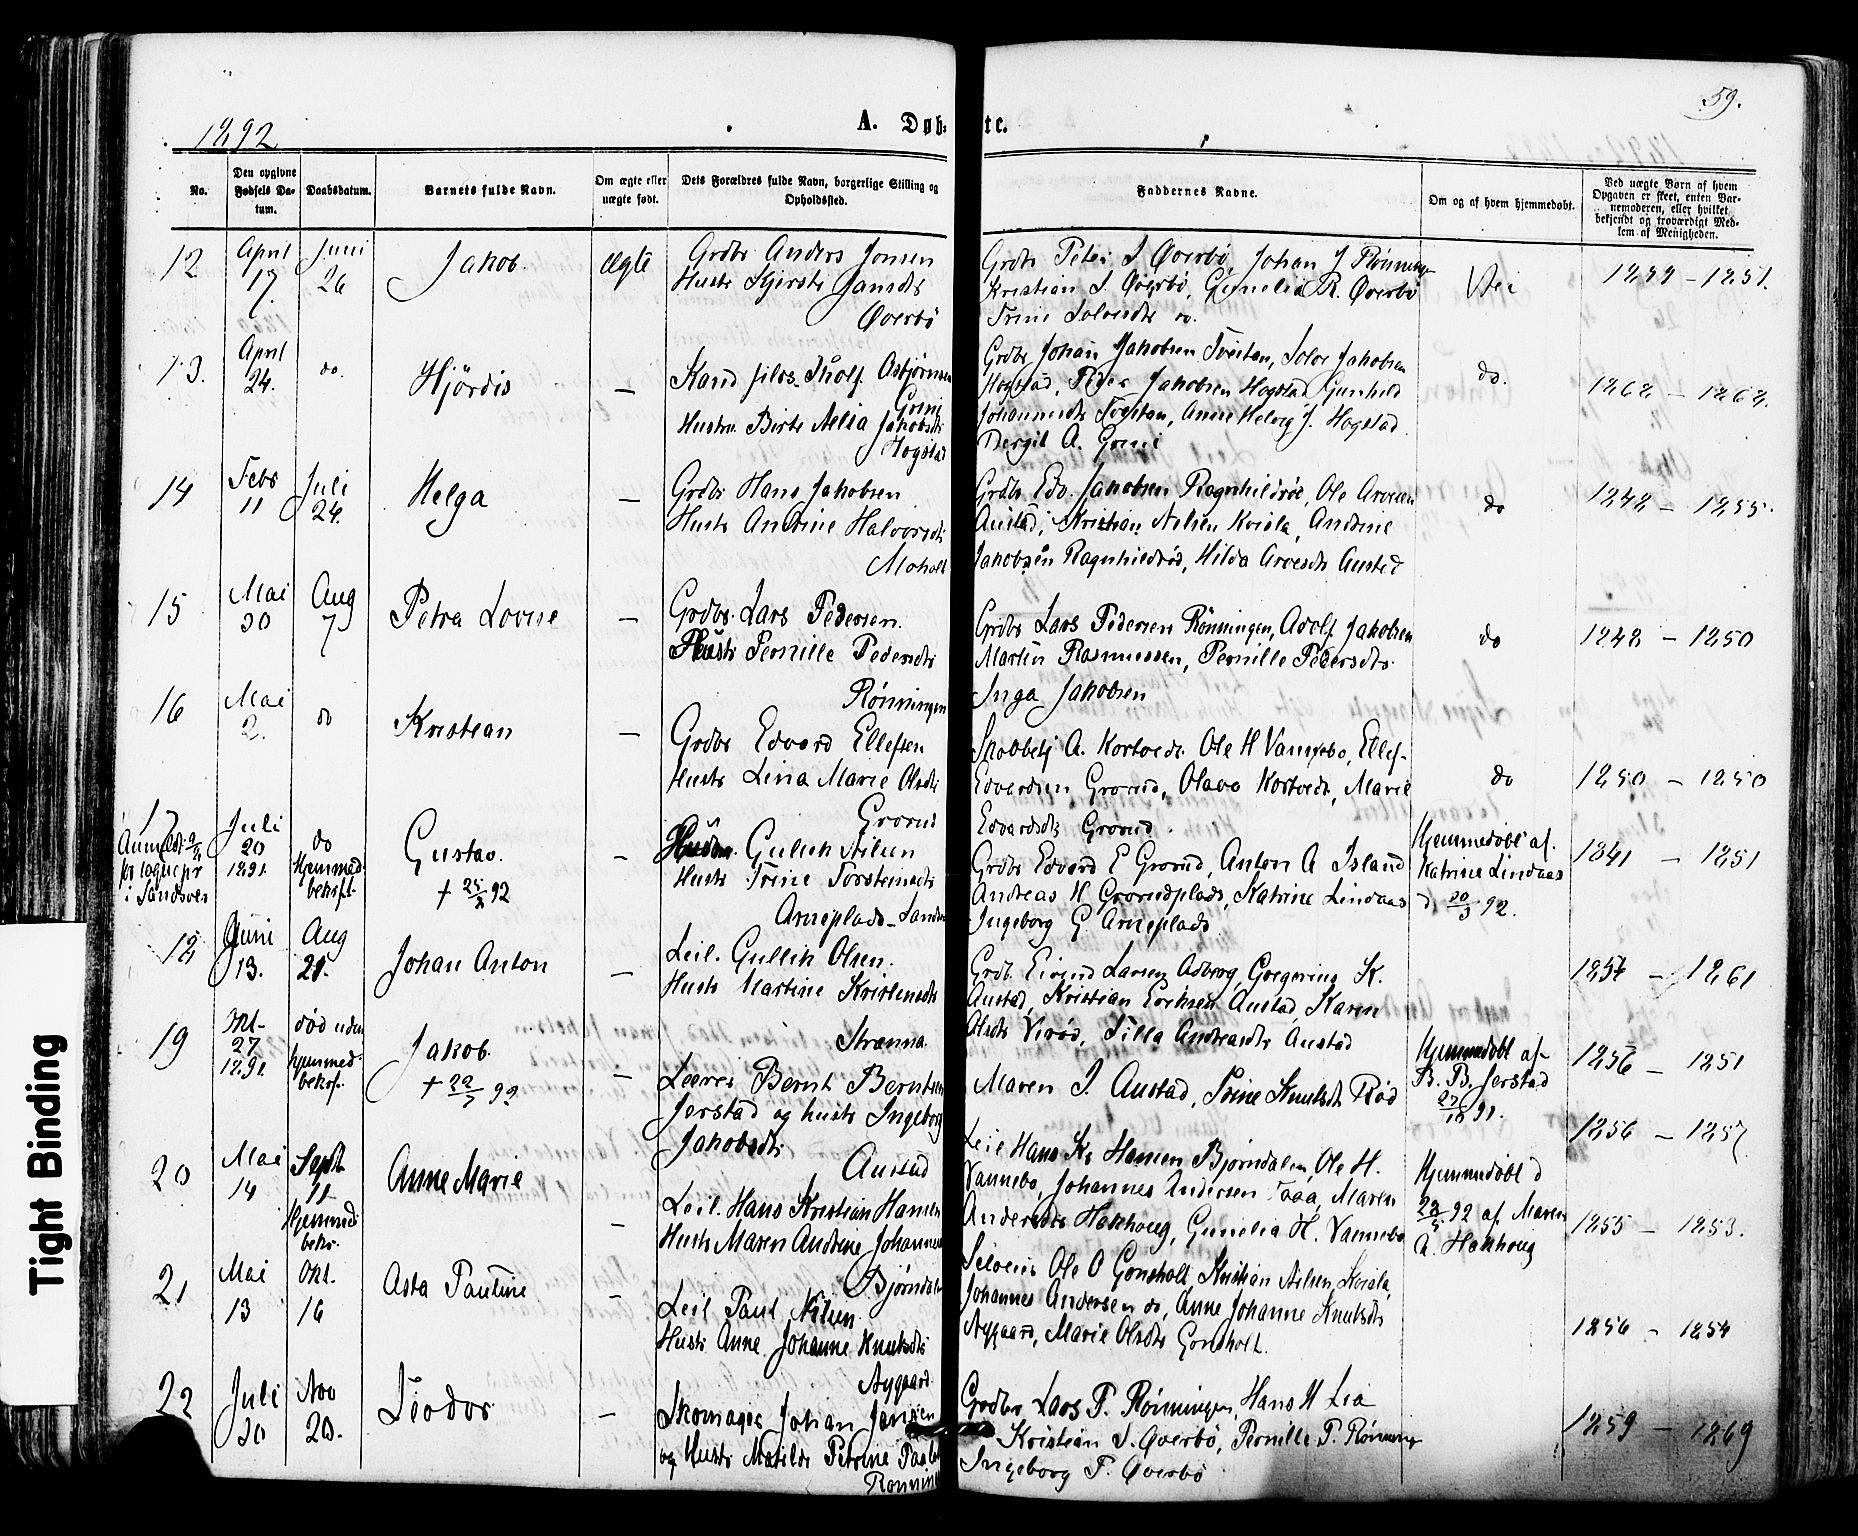 59.
1892
A. Døb- te.
No.
Den opgivne Fødsels Datum.
Daabsdatum.
Barnets fulde Navn.
Om ægte eller uægte født.
Dets Forældres fulde Navn, borgerlige Stilling og Opholdssted.
Faddernes Navne.
Om og af hvem hjemmedøbt.
Ved uægte Børn af hvem Opgaven er skeet, enten Barnemoderen, eller hvilket bekjendt og troværdigt Medlem af Menigheden.
12 April 17. Juni 26 Jakob. ægte
Grdbr Anders Jonsen
Hustr Kjersti Jansdtr
Øverbø
Grdbr Peter J Øverbø, Johan J Rønningen
Kristian J. Øverbø, Gunelia R. Øverbø
Trine Solvesdtr do.
Nei 1849 - 1851.
13. April 24. do. Hjördis —
Kand. filos. Tholf Asbjørnsen
Grini
Hustru Birte Aelia Jakobsdtr
Hogstad
Grdbr Johan Jakobsen Tveitan, Solve Jakobsen
Hogstad, Peder Jakobsen Hogstad Gunhild
Johannesdtr Tveitan, Anne Helvig J. Hogstad
Bergit A. Grini
do. 1862 - 1862.
14 Febr 11 Juli 24. Helga —
Grdbr Hans Jakobsen
Hustr Andrine Halvorsdtr
Moholt
Grdbr Edv. Jakobsen Ragnhildrøe, Ole Arvesen
Austad, Kristian Nilsen Kviśla, Andrine
Jakobsen Ragnhildrød, Hilda Arvesdtr Austad
do 1848 - 1855.
15 Mai 30 Aug 7 Petra Lovise —
Grdbr. Lars Pedersen.
Hustr Pernille Pedersdtr
Rönningen
Grdbr Lars Pedersen Rönningen, Adolf Jakobsen
Martin Rasmussen, Pernille Pedersdtr.
Inga Jakobsen
do 1848 - 1850
16 Mai 2. do Kristian —
Grdbr Edvard Ellefsen
Hustr Lina Marie Olsdtr
Grorud
A. Kortvedt. Ole H Vannebo, Ellef
Edvardsen Grorud, Olava Kortvedt, Marie
Edvardsdtr Grorud.
do 1850 - 1850
17 Juli 20 1891. do Hjemmed. bekrft. Gustav. —
i Sandsver
Gulich Nilsen
Hustr Trine Torsteinsdtr
Arneplads - Sandsv
Grdbr Edvard E Grorud, Anton A Island
Andreas H Grorudplads, Katrine Lindaas
Ingeborg G Arneplads.
Hjemmedøbt af.
Katrine Lindaas
d 30/3 92.
1841 - 1851
18 Juni 13. Aug 21. Johan Anton —
Leil. Gullik Olsen.
Hustr Martine Kristensdtr
Strænna.
Grdb. Eivind Larsen Asberg, Gregerius K.
Austad, Kristian Eriksen Austad, Karen
Olsdtr Virød, Tilla Andreasdtr Austad
1854 - 1861
19 Okt- 27 1891 død uden hjemmed- bekrf. Jakob —
Bernt Berntsen
Jerstad og hustr Ingeborg
Jakobsdtr
Austad
Maren J. Austad, Trine Knutsdtr Rød
Hjemmedøbt af
B. B. Jerstad
27/10 91.
1856 - 1851
1856 - 1857.
20 Mai 14 Sept 11 Hjemmed bekr. Anne Marie —
Leil. Hans Kristian Hansen
Hustr Maren Andrine Johannes
Bjørndalen
Leil Hans Kr Hansen Bjørndalen, Ole H.
Vannebo, Johannes Andersen Taaa, Maren
Andersdtr Hakhoug, Gunelia H. Vannebo
Hjemmedøbt d
23/5 92 af Maren
A. Hakhoug
1855 - 1853.
21 Mai 13 Okt. 16 Asta Pauline —
Leil Paul Nilsen.
Hustr Anne Johanne Knutsdtr
Nygaard.
Selveier Ole O Gonsholt Kristian Nilsen Kvisla,
Johannes Andersen do, Anne Johanne Knutsdtr
Nygaard, Marie Olsdtr Gonsholt.
1856 - 1854
22 Juli 30 Nov 20. Teodor —
Skomager Johan Jansen
og Hustr Matilde Petrine Paals
Rønning
Grdbr Lars P. Rønningen, Hans H Lia
Kristian J. Øverbø, Pernille P. Rønning
Ingeborg P. Øverbø
1859 - 1869
Tight Binding